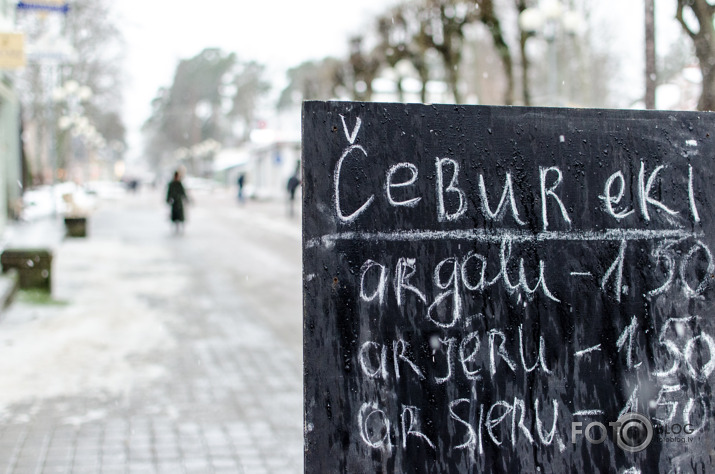 Čebureki
ar gaļu - 1.50
ar jēru - 1.50
ar sieru - 1.50
FOTOBLOG